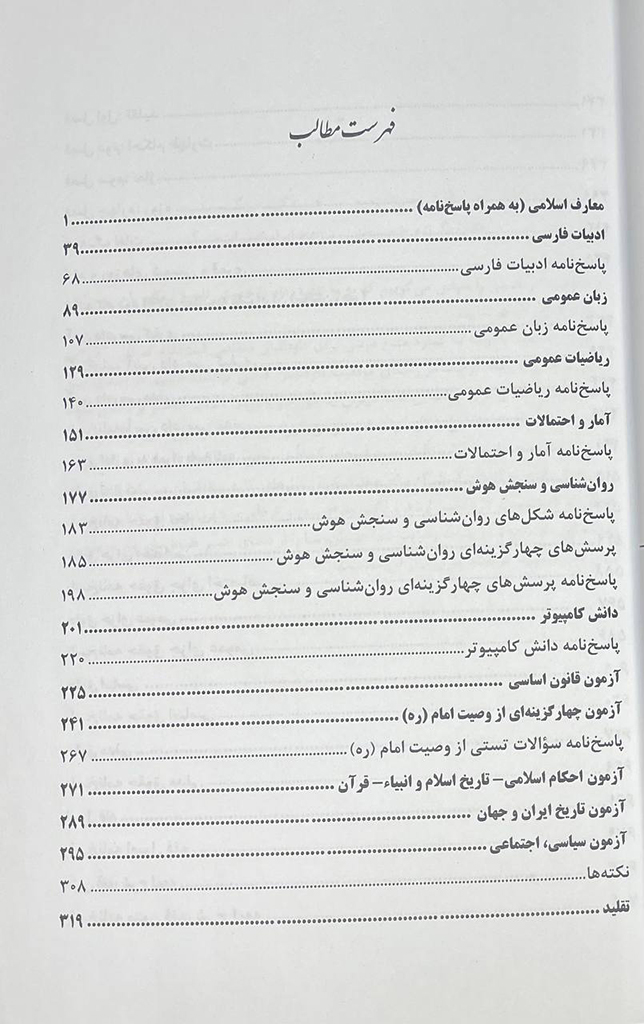 فهرست مطالب
معارف اسلامی (به همراه پاسخ‌نامه) ........ ۱
ادبیات فارسی ........ ۳۹
پاسخ‌نامه ادبیات فارسی ........ ۶۸
زبان عمومی ........ ۸۹
پاسخ‌نامه زبان عمومی ........ ۱۰۷
ریاضیات عمومی ........ ۱۲۹
پاسخ‌نامه ریاضیات عمومی ........ ۱۴۰
آمار و احتمالات ........ ۱۵۱
پاسخ‌نامه آمار و احتمالات ........ ۱۶۳
روان‌شناسی و سنجش هوش ........ ۱۷۷
پاسخ‌نامه شکل‌های روان‌شناسی و سنجش هوش ........ ۱۸۳
پرسش‌های چهارگزینه‌ای روان‌شناسی و سنجش هوش ........ ۱۸۵
پاسخ‌نامه پرسش‌های چهارگزینه‌ای روان‌شناسی و سنجش هوش ........ ۱۹۸
دانش کامپیوتر ........ ۲۰۱
پاسخ‌نامه دانش کامپیوتر ........ ۲۲۰
آزمون قانون اساسی ........ ۲۲۵
آزمون چهارگزینه‌ای از وصیت امام (ره) ........ ۲۴۱
پاسخ‌نامه سؤالات تستی از وصیت امام (ره) ........ ۲۶۷
آزمون احکام اسلامی- تاریخ اسلام و انبیاء- قرآن ........ ۲۷۱
آزمون تاریخ ایران و جهان ........ ۲۸۹
آزمون سیاسی، اجتماعی ........ ۲۹۵
نکته‌ها ........ ۳۰۸
تقلید ........ ۳۱۹